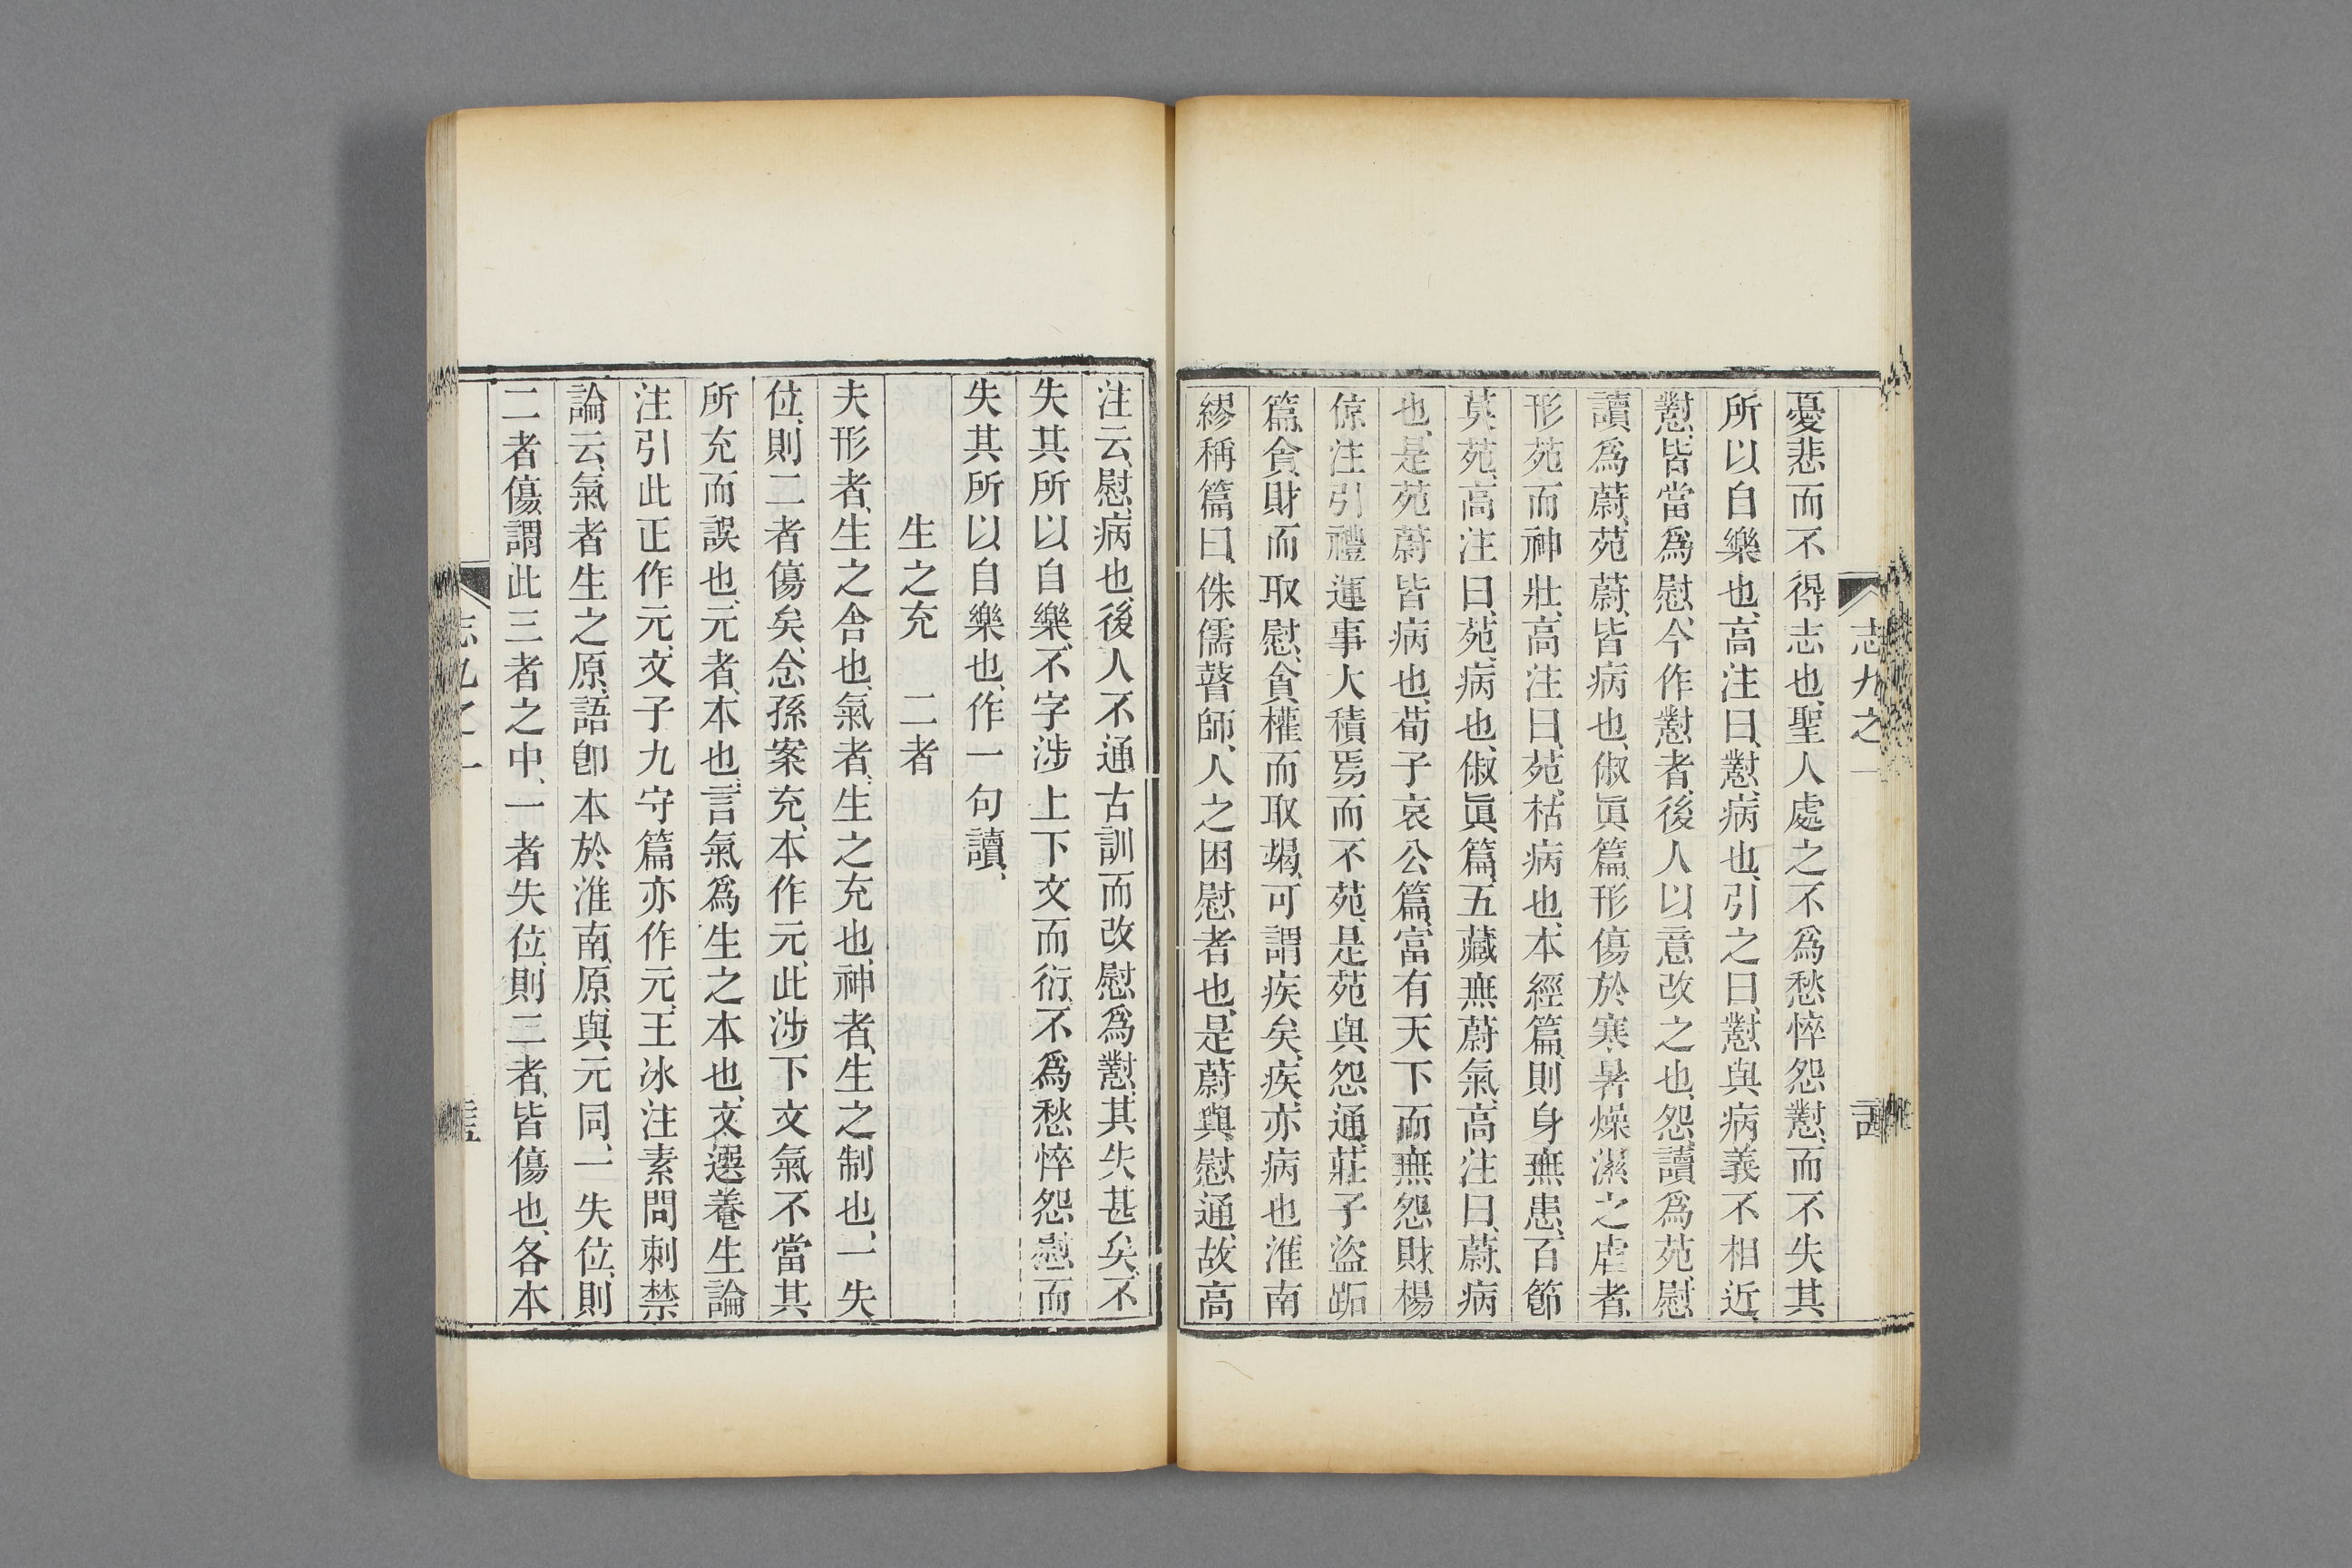 志九之一
憂悲而不得志也、聖人處之不爲愁悴怨懟、而不失其
所以自樂也、高注曰、懟、病也、引之曰、懟與病義不相近、
懟、皆當爲慰、今作懟者、後人以意改之也、怨讀爲苑、慰
讀爲蔚、苑蔚、皆病也、俶眞篇、形傷於寒暑燥濕之虐者、
形苑而神壯、高注曰、苑、枯病也、本經篇、則身無患、百節
莫苑、高注曰、苑、病也、俶眞篇、五藏無蔚氣、高注曰、蔚、病
也、是苑蔚皆病也、荀子哀公篇、富有天下而無怨財、楊
倞注引禮運事大積焉而不苑、是苑與怨通、莊子盜跖
篇、貪財而取慰、貪權而取竭、可謂疾矣、疾、亦病也、淮南
繆稱篇曰、侏儒瞽師、人之困慰者也、是蔚與慰通、故高
注云、慰、病也、後人不通古訓而改慰爲懟、其失甚矣、不
失其所以自樂、不字涉上下文而衍、不爲愁悴怨慰而
失其所以自樂也、作一句讀、
生之充　二者
夫形者、生之舍也、氣者、生之充也、神者、生之制也、一失
位、則二者傷矣、念孫案充、本作元、此涉下文氣不當其
所充而誤也、元者、本也、言氣爲生之本也、文選養生論
注引此正作元、文子九守篇亦作元、王冰注素問刺禁
論云、氣者生之原、語卽本於淮南、原、與元同、一失位、則
二者傷、謂此三者之中、一者失位、則二者皆傷也、各本
志九之一